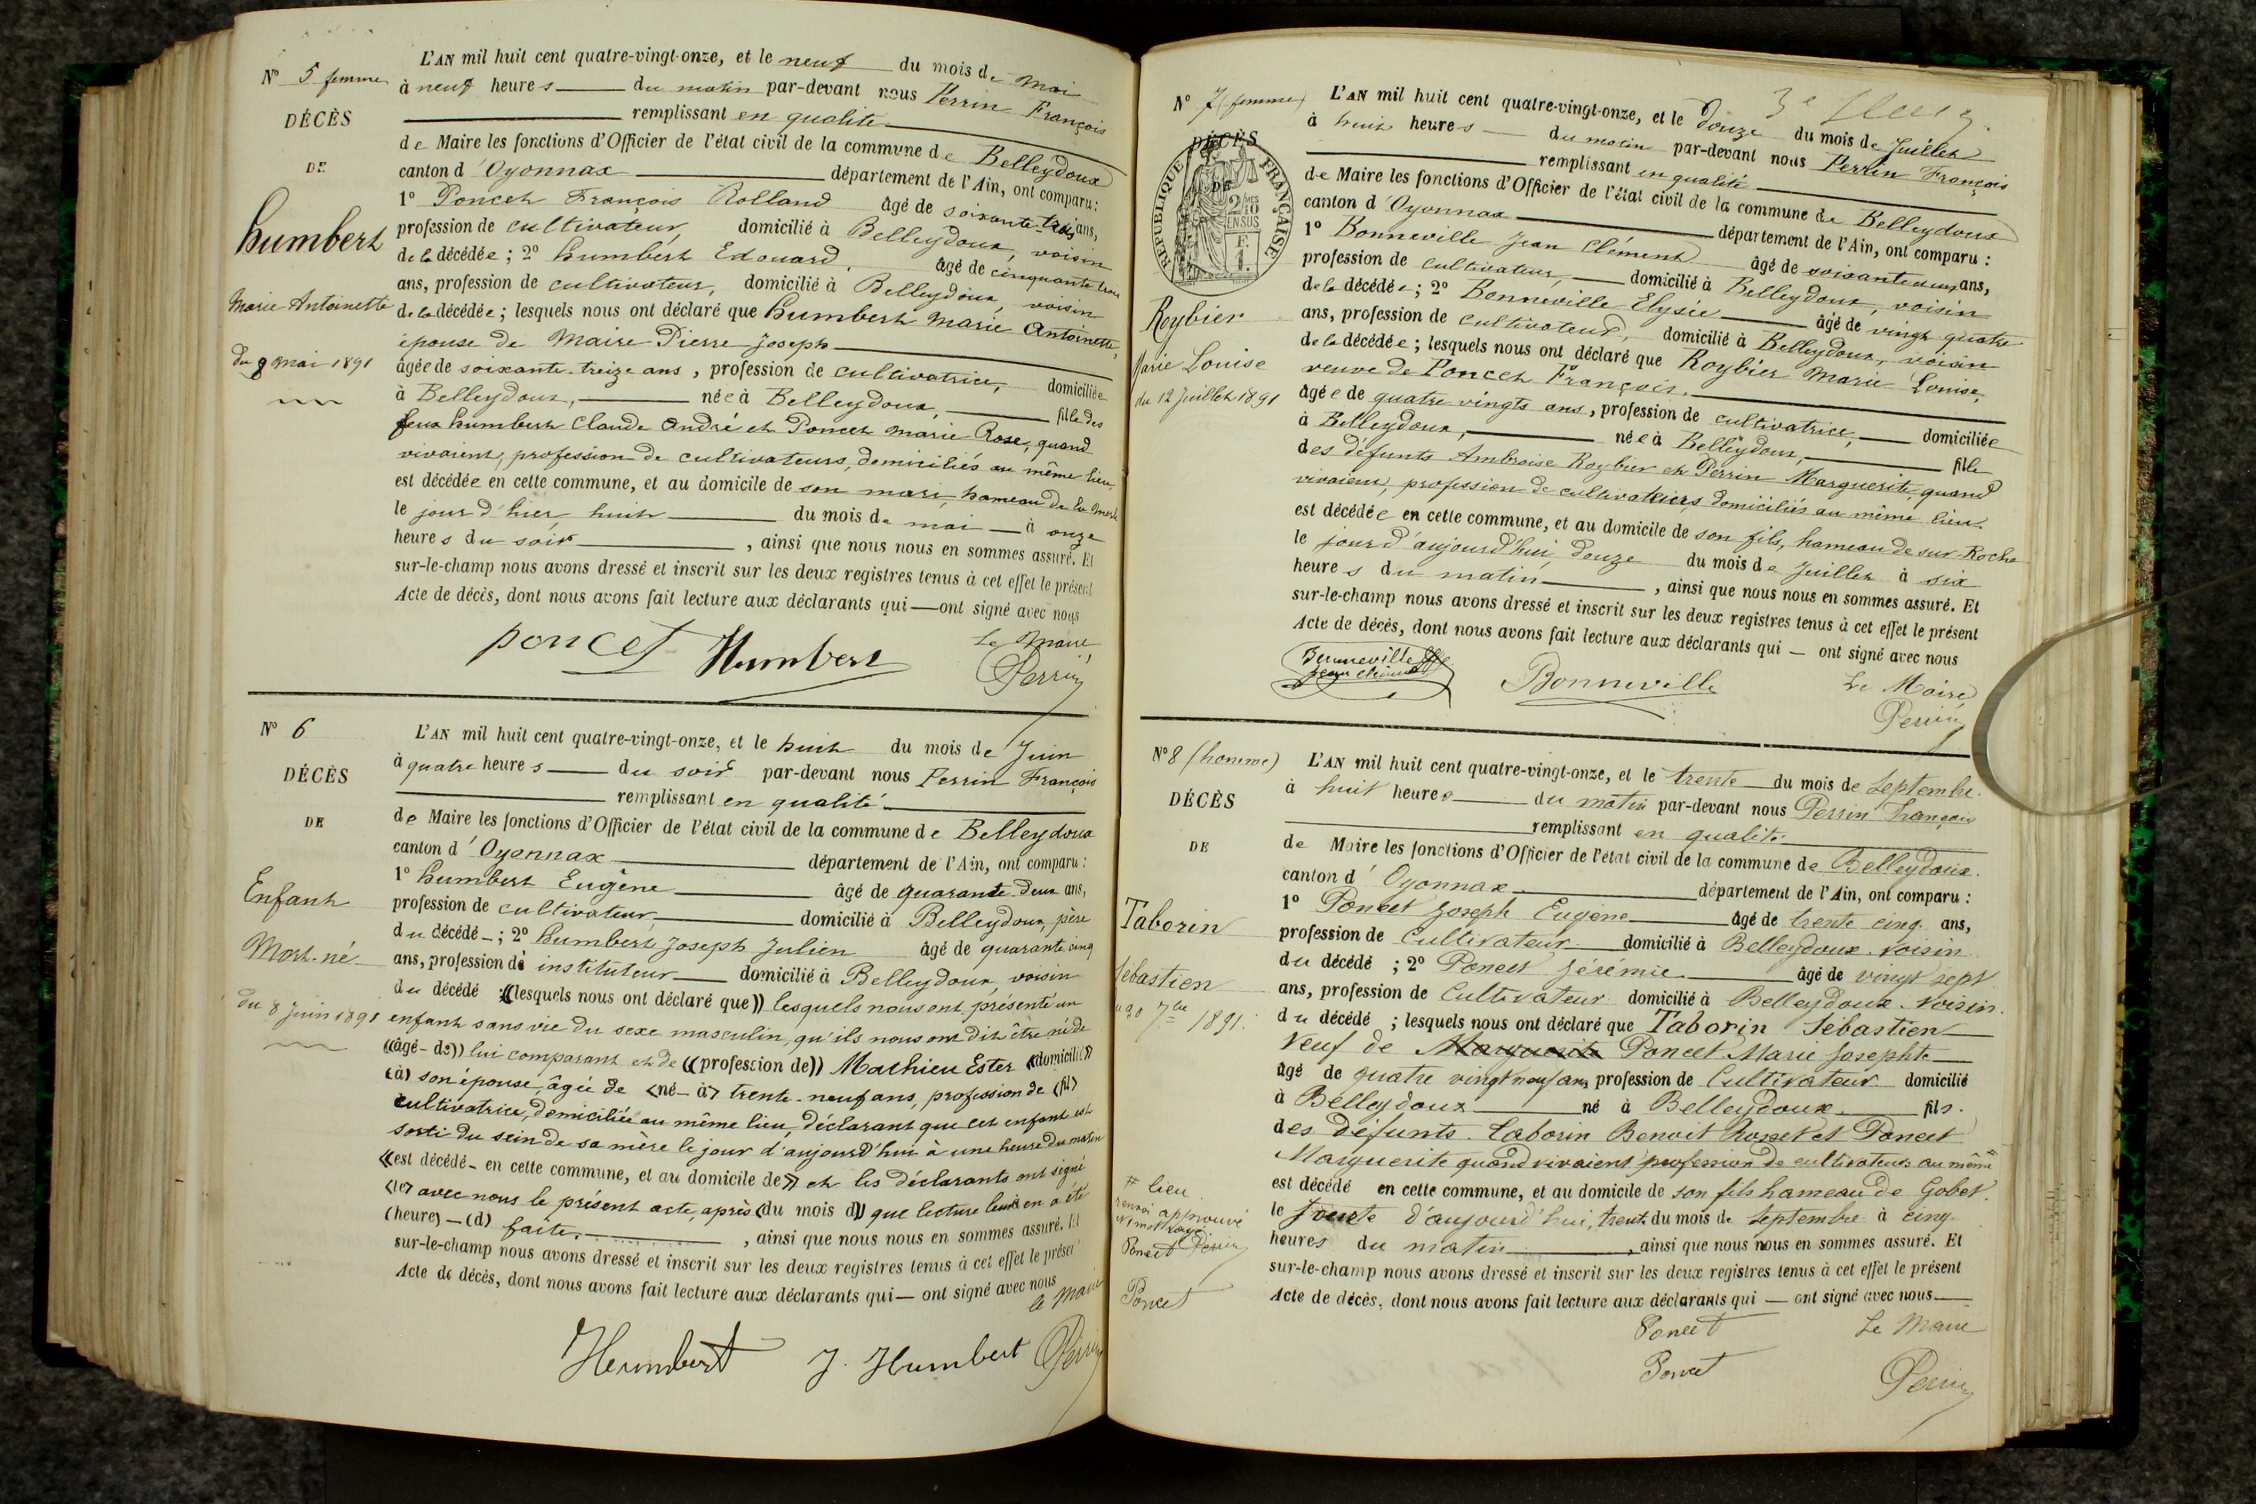 N° 5 femme
DÉCÈS
DE
humbert
Marie Antoinette
du 8 mai 1891
L'AN mil huit cent quatre-vingt-onze, et le neuf du mois de Mai
à neuf heures du matin par-devant nous Perrin François
remplissant en qualité
de Maire les fonctions d'Officier de l'état civil de la commune de Belleydoux
canton d'Oyonnax département de l'Ain, ont comparu :
1° Poncet François Rolland âgé de soixante trois ans,
profession de cultivateur, domicilié à Belleydoux, voisin
de la décédée ; 2° humbert Edouard, âgé de cinquante trois
ans, profession de cultivateur, domicilié à Belleydoux, voisin
de la décédée ; lesquels nous ont déclaré que humbert Marie Antoinette,
épouse de Maire Pierre Joseph
âgée de soixante-treize ans, profession de cultivatrice, domiciliée
à Belleydoux, née à Belleydoux, fille des
feux humbert Claude André et Poncet Marie Rose, quand
vivaient, profession de cultivateurs, domiciliés au même lieu,
est décédée en cette commune, et au domicile de son mari, hameau de
le jour d'hier huit du mois de mai à onze
heures du soir, ainsi que nous nous en sommes assuré. Et
sur-le-champ nous avons dressé et inscrit sur les deux registres tenus à cet effet le présent
Acte de décès, dont nous avons fait lecture aux déclarants qui — ont signé avec nous
poncet Humbert Le Maire,
Perrin
N° 6
DÉCÈS
DE
Enfant
Mort-né
du 8 Juin 1891
L'AN mil huit cent quatre-vingt-onze, et le huit du mois de Juin
à quatre heures du soir par-devant nous Perrin François
remplissant en qualité
de Maire les fonctions d'Officier de l'état civil de la commune de Belleydoux
canton d'Oyonnax département de l'Ain, ont comparu :
1° humbert Eugène âgé de quarante deux ans,
profession de cultivateur, domicilié à Belleydoux, père
du décédé ; 2° humbert Joseph Julien âgé de quarante cinq
ans, profession de instituteur domicilié à Belleydoux, voisin
du décédé ; ((lesquels nous ont déclaré que)) lesquels nous ont présenté un
enfant sans vie du sexe masculin, qu'ils nous ont dit être né de
((âgé de)) lui comparant et de ((profession de)) Mathieu Ester ((domicilié))
(à) son épouse, âgée de (né à) trente-neuf ans, profession de (fil)
cultivatrice, domiciliée au même lieu, déclarant que cet enfant est
sorti du sein de sa mère le jour d'aujourd'hui à une heure du matin
((est décédé en cette commune, et au domicile de)) et les déclarants ont signé
(le) avec nous le présent acte, après (du mois d)) que lecture leur en a été
(heure) — (d) faite, ainsi que nous nous en sommes assuré. Et
sur-le-champ nous avons dressé et inscrit sur les deux registres tenus à cet effet le présent
Acte de décès, dont nous avons fait lecture aux déclarants qui — ont signé avec nous
le Maire
Humbert J. Humbert Perrin
N° 7 (femme)
DÉCÈS
DE
RÉPUBLIQUE FRANÇAISE
2/10 EN SUS
Roybier
Marie Louise
du 12 Juillet 1891
L'AN mil huit cent quatre-vingt-onze, et le douze du mois de Juillet
à huit heures du matin par-devant nous Perrin François
remplissant en qualité
de Maire les fonctions d'Officier de l'état civil de la commune de Belleydoux
canton d'Oyonnax département de l'Ain, ont comparu :
1° Bonneville Jean Clément âgé de soixante deux ans,
profession de cultivateur, domicilié à Belleydoux, voisin
de la décédée ; 2° Bonneville Elysée âgé de vingt quatre
ans, profession de cultivateur, domicilié à Belleydoux, voisin
de la décédée ; lesquels nous ont déclaré que Roybier Marie Louise,
veuve de Poncet François,
âgée de quatre vingts ans, profession de cultivatrice, domiciliée
à Belleydoux, née à Belleydoux, fille
des défunts Ambroise Roybier et Perrin Marguerite, quand
vivaient, profession de cultivateurs, domiciliés au même lieu,
est décédée en cette commune, et au domicile de son fils, hameau de sur-Roche
le jour d'aujourd'hui, douze du mois de Juillet à six
heures du matin, ainsi que nous nous en sommes assuré. Et
sur-le-champ nous avons dressé et inscrit sur les deux registres tenus à cet effet le présent
Acte de décès, dont nous avons fait lecture aux déclarants qui — ont signé avec nous
Bonneville Bonneville Le Maire
Perrin
N° 8 (homme)
DÉCÈS
DE
Taborin
Sébastien
du 30 7bre 1891.
L'AN mil huit cent quatre-vingt-onze, et le trente du mois de Septembre.
à huit heures du matin par-devant nous Perrin François
remplissant en qualité
de Maire les fonctions d'Officier de l'état civil de la commune de Belleydoux.
canton d'Oyonnax département de l'Ain, ont comparu :
1° Poncet Joseph Eugène âgé de trente cinq ans,
profession de Cultivateur domicilié à Belleydoux. Voisin
du décédé ; 2° Poncet Jérémie âgé de vingt sept
ans, profession de Cultivateur domicilié à Belleydoux. Voisin.
du décédé ; lesquels nous ont déclaré que Taborin Sébastien
Veuf de Marguerite Poncet Marie Josephte
âgé de quatre vingt neuf ans, profession de Cultivateur domicilié
à Belleydoux né à Belleydoux. fils.
des défunts. Taborin Benoit et Poncet
Marguerite quand vivaient profession de cultivateurs au même #
est décédé en cette commune, et au domicile de son fils hameau de Gobet.
le d'aujourd'hui, trente du mois de Septembre à cinq
heures du matin, ainsi que nous nous en sommes assuré. Et
sur-le-champ nous avons dressé et inscrit sur les deux registres tenus à cet effet le présent
Acte de décès, dont nous avons fait lecture aux déclarants qui — ont signé avec nous
# lieu.
renvoi approuvé
Poncet Perrin
Poncet
Poncet Le Maire
Poncet Perrin